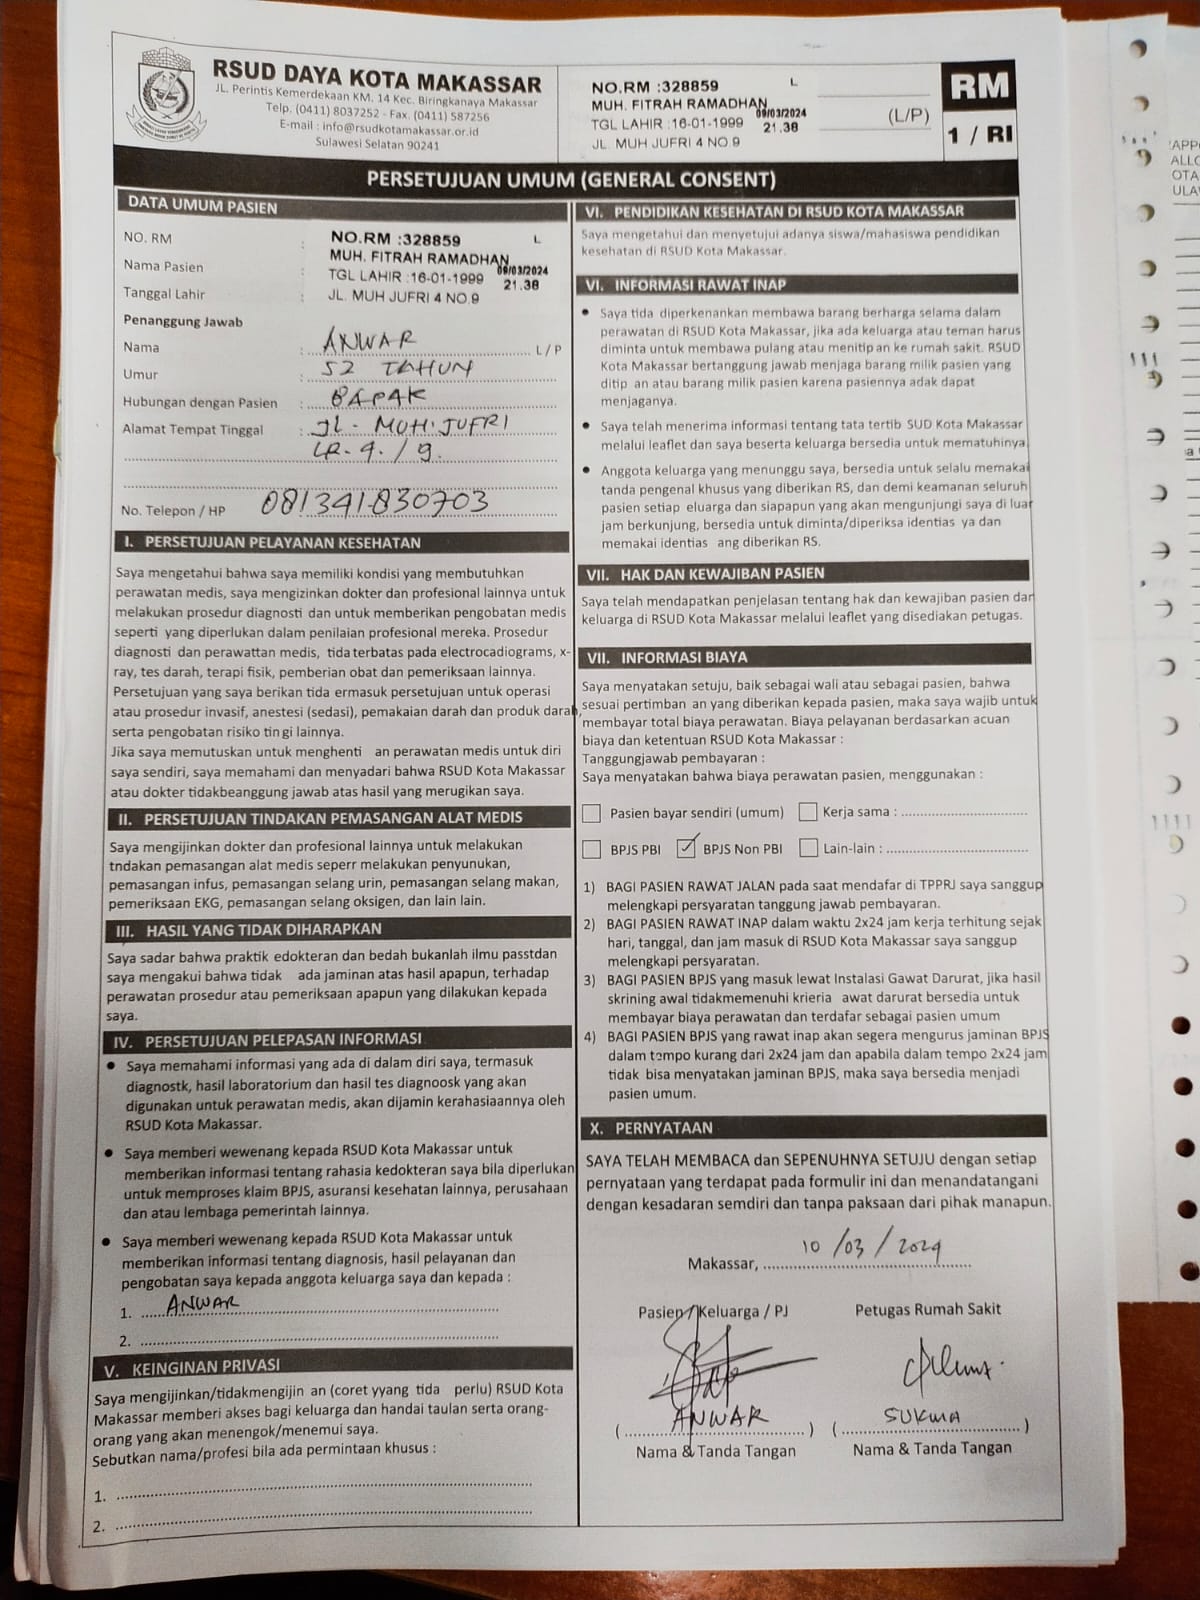 RSUD DAYA KOTA MAKASSAR
JL. Perintis Kemerdekaan KM. 14 Kec. Biringkanaya Makassar
Telp. (0411) 8037252 - Fax. (0411) 587256
E-mail : info@rsudkotamakassar.or.id
Sulawesi Selatan 90241
NO.RM :328859 L
MUH. FITRAH RAMADHAN
TGL LAHIR :16-01-1999 09/03/2024 21.38
JL. MUH JUFRI 4 NO.9
(L/P)
RM
1 / RI
PERSETUJUAN UMUM (GENERAL CONSENT)
DATA UMUM PASIEN
NO. RM : NO.RM :328859 L
Nama Pasien : MUH. FITRAH RAMADHAN
Tanggal Lahir : TGL LAHIR :16-01-1999 09/03/2024 21.38
JL. MUH JUFRI 4 NO.9
Penanggung Jawab
Nama : ANWAR L / P
Umur : 52 TAHUN
Hubungan dengan Pasien : BAPAK
Alamat Tempat Tinggal : JL - MUH.JUFRI
LR. 4. / 9.
No. Telepon / HP 081341830703
I. PERSETUJUAN PELAYANAN KESEHATAN
Saya mengetahui bahwa saya memiliki kondisi yang membutuhkan
perawatan medis, saya mengizinkan dokter dan profesional lainnya untuk
melakukan prosedur diagnosti dan untuk memberikan pengobatan medis
seperti yang diperlukan dalam penilaian profesional mereka. Prosedur
diagnosti dan perawattan medis, tida terbatas pada electrocadiograms, x-
ray, tes darah, terapi fisik, pemberian obat dan pemeriksaan lainnya.
Persetujuan yang saya berikan tida ermasuk persetujuan untuk operasi
atau prosedur invasif, anestesi (sedasi), pemakaian darah dan produk darah,
serta pengobatan risiko tin gi lainnya.
Jika saya memutuskan untuk menghenti an perawatan medis untuk diri
saya sendiri, saya memahami dan menyadari bahwa RSUD Kota Makassar
atau dokter tidakbeanggung jawab atas hasil yang merugikan saya.
II. PERSETUJUAN TINDAKAN PEMASANGAN ALAT MEDIS
Saya mengijinkan dokter dan profesional lainnya untuk melakukan
tndakan pemasangan alat medis seperr melakukan penyunukan,
pemasangan infus, pemasangan selang urin, pemasangan selang makan,
pemeriksaan EKG, pemasangan selang oksigen, dan lain lain.
III. HASIL YANG TIDAK DIHARAPKAN
Saya sadar bahwa praktik edokteran dan bedah bukanlah ilmu passtdan
saya mengakui bahwa tidak ada jaminan atas hasil apapun, terhadap
perawatan prosedur atau pemeriksaan apapun yang dilakukan kepada
saya.
IV. PERSETUJUAN PELEPASAN INFORMASI
• Saya memahami informasi yang ada di dalam diri saya, termasuk
diagnostk, hasil laboratorium dan hasil tes diagnoosk yang akan
digunakan untuk perawatan medis, akan dijamin kerahasiaannya oleh
RSUD Kota Makassar.
• Saya memberi wewenang kepada RSUD Kota Makassar untuk
memberikan informasi tentang rahasia kedokteran saya bila diperlukan
untuk memproses klaim BPJS, asuransi kesehatan lainnya, perusahaan
dan atau lembaga pemerintah lainnya.
• Saya memberi wewenang kepada RSUD Kota Makassar untuk
memberikan informasi tentang diagnosis, hasil pelayanan dan
pengobatan saya kepada anggota keluarga saya dan kepada :
1. ANWAR
2.
V. KEINGINAN PRIVASI
Saya mengijinkan/tidakmengijin an (coret yyang tida perlu) RSUD Kota
Makassar memberi akses bagi keluarga dan handai taulan serta orang-
orang yang akan menengok/menemui saya.
Sebutkan nama/profesi bila ada permintaan khusus :
1.
2.
VI. PENDIDIKAN KESEHATAN DI RSUD KOTA MAKASSAR
Saya mengetahui dan menyetujui adanya siswa/mahasiswa pendidikan
kesehatan di RSUD Kota Makassar.
VI. INFORMASI RAWAT INAP
• Saya tida diperkenankan membawa barang berharga selama dalam
perawatan di RSUD Kota Makassar, jika ada keluarga atau teman harus
diminta untuk membawa pulang atau menitip an ke rumah sakit. RSUD
Kota Makassar bertanggung jawab menjaga barang milik pasien yang
ditip an atau barang milik pasien karena pasiennya adak dapat
menjaganya.
• Saya telah menerima informasi tentang tata tertib SUD Kota Makassar
melalui leaflet dan saya beserta keluarga bersedia untuk mematuhinya
• Anggota keluarga yang menunggu saya, bersedia untuk selalu memakai
tanda pengenal khusus yang diberikan RS, dan demi keamanan seluruh
pasien setiap eluarga dan siapapun yang akan mengunjungi saya di luar
jam berkunjung, bersedia untuk diminta/diperiksa identias ya dan
memakai identias ang diberikan RS.
VII. HAK DAN KEWAJIBAN PASIEN
Saya telah mendapatkan penjelasan tentang hak dan kewajiban pasien dan
keluarga di RSUD Kota Makassar melalui leaflet yang disediakan petugas.
VII. INFORMASI BIAYA
Saya menyatakan setuju, baik sebagai wali atau sebagai pasien, bahwa
sesuai pertimban an yang diberikan kepada pasien, maka saya wajib untuk
membayar total biaya perawatan. Biaya pelayanan berdasarkan acuan
biaya dan ketentuan RSUD Kota Makassar :
Tanggungjawab pembayaran :
Saya menyatakan bahwa biaya perawatan pasien, menggunakan :
Pasien bayar sendiri (umum) Kerja sama :
BPJS PBI ✓ BPJS Non PBI Lain-lain :
1) BAGI PASIEN RAWAT JALAN pada saat mendafar di TPPRJ saya sanggup
melengkapi persyaratan tanggung jawab pembayaran.
2) BAGI PASIEN RAWAT INAP dalam waktu 2x24 jam kerja terhitung sejak
hari, tanggal, dan jam masuk di RSUD Kota Makassar saya sanggup
melengkapi persyaratan.
3) BAGI PASIEN BPJS yang masuk lewat Instalasi Gawat Darurat, jika hasil
skrining awal tidakmemenuhi krieria awat darurat bersedia untuk
membayar biaya perawatan dan terdafar sebagai pasien umum
4) BAGI PASIEN BPJS yang rawat inap akan segera mengurus jaminan BPJS
dalam tempo kurang dari 2x24 jam dan apabila dalam tempo 2x24 jam
tidak bisa menyatakan jaminan BPJS, maka saya bersedia menjadi
pasien umum.
X. PERNYATAAN
SAYA TELAH MEMBACA dan SEPENUHNYA SETUJU dengan setiap
pernyataan yang terdapat pada formulir ini dan menandatangani
dengan kesadaran semdiri dan tanpa paksaan dari pihak manapun.
Makassar, 10 /03 / 2024
Pasien / Keluarga / PJ Petugas Rumah Sakit
( ANWAR ) ( SUKMA )
Nama & Tanda Tangan Nama & Tanda Tangan